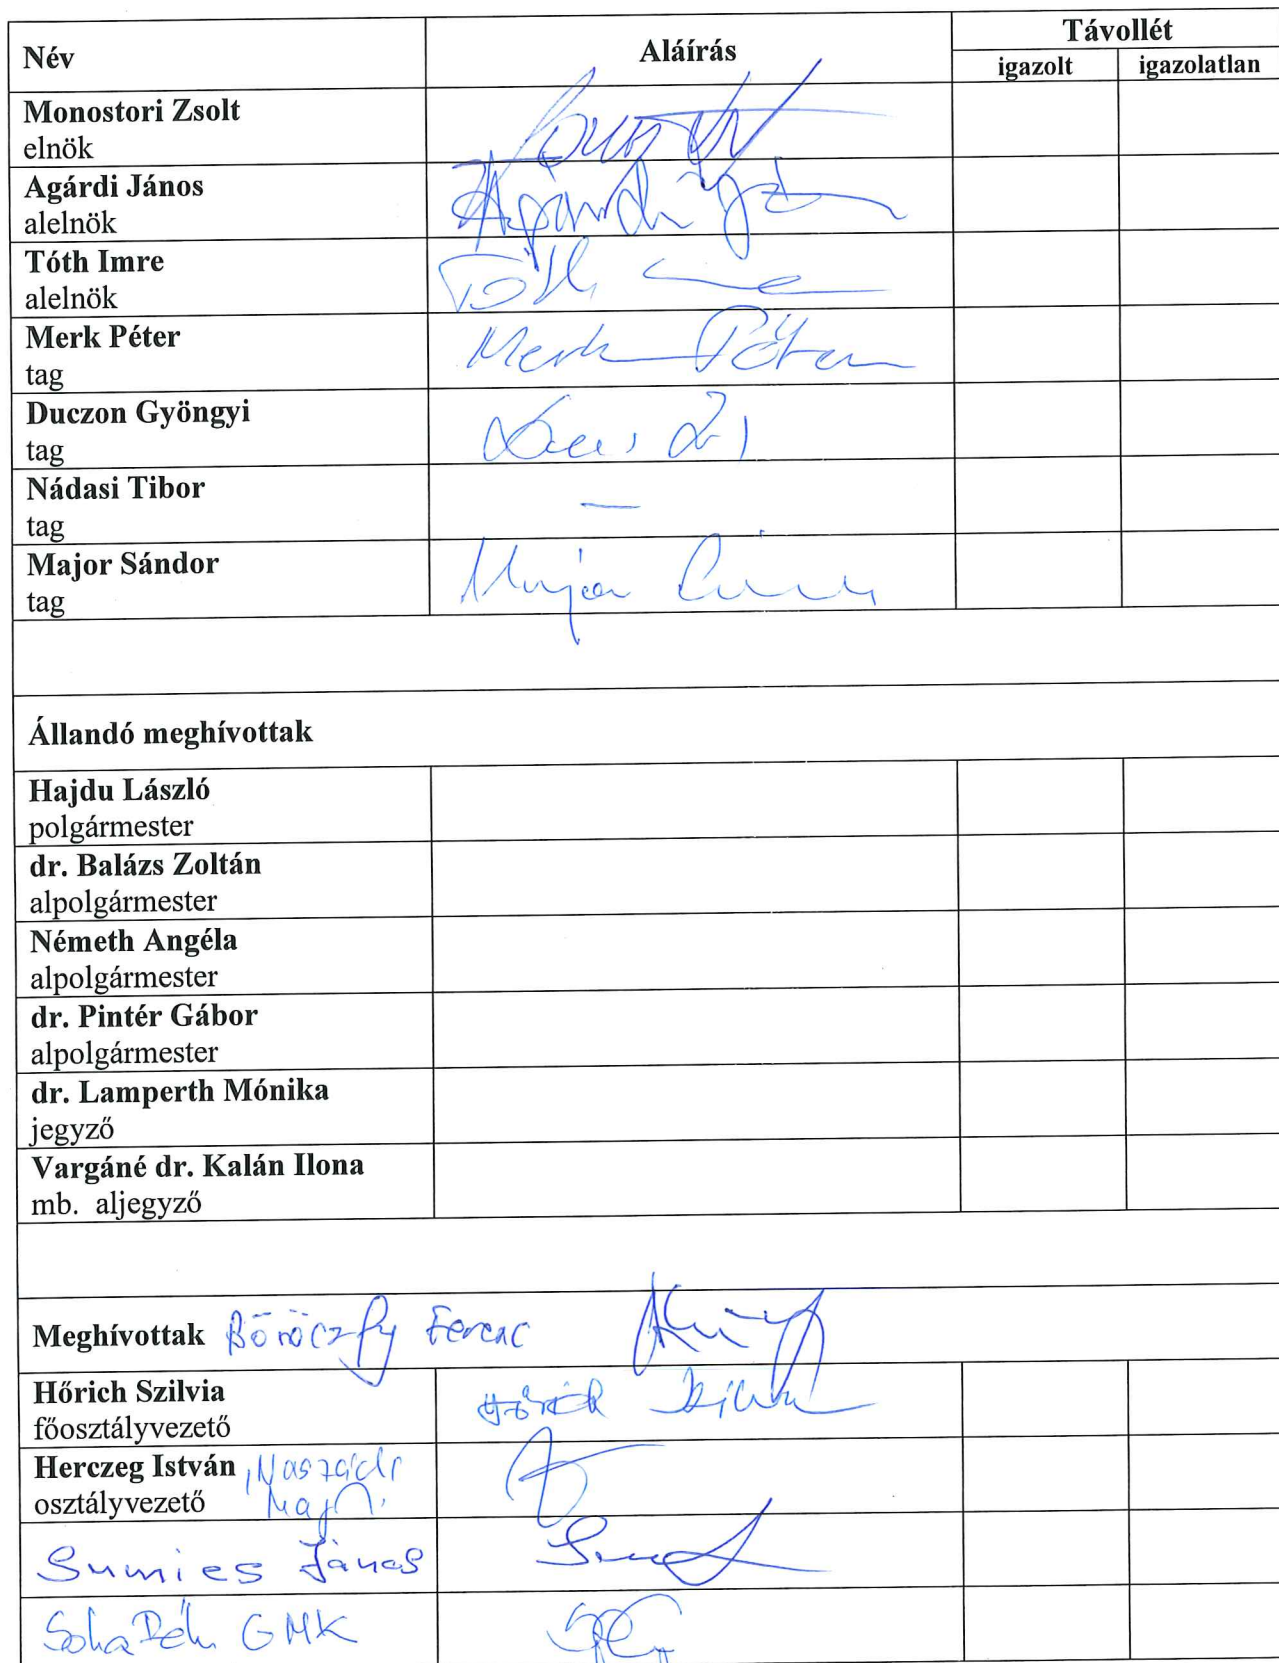 Név Aláírás Távollét
igazolt igazolatlan
Monostori Zsolt
elnök
Agárdi János
alelnök
Agárdi
Tóth Imre
alelnök
Tóth
Merk Péter
tag
Merk Péter
Duczon Gyöngyi
tag
Nádasi Tibor
tag
—
Major Sándor
tag
Major
Állandó meghívottak
Hajdu László
polgármester
dr. Balázs Zoltán
alpolgármester
Németh Angéla
alpolgármester
dr. Pintér Gábor
alpolgármester
dr. Lamperth Mónika
jegyző
Vargáné dr. Kalán Ilona
mb. aljegyző
Meghívottak Böröczfy Ferenc
Hőrich Szilvia
főosztályvezető
Hőrich Szilvia
Herczeg István
osztályvezető
Sumies János
GMK